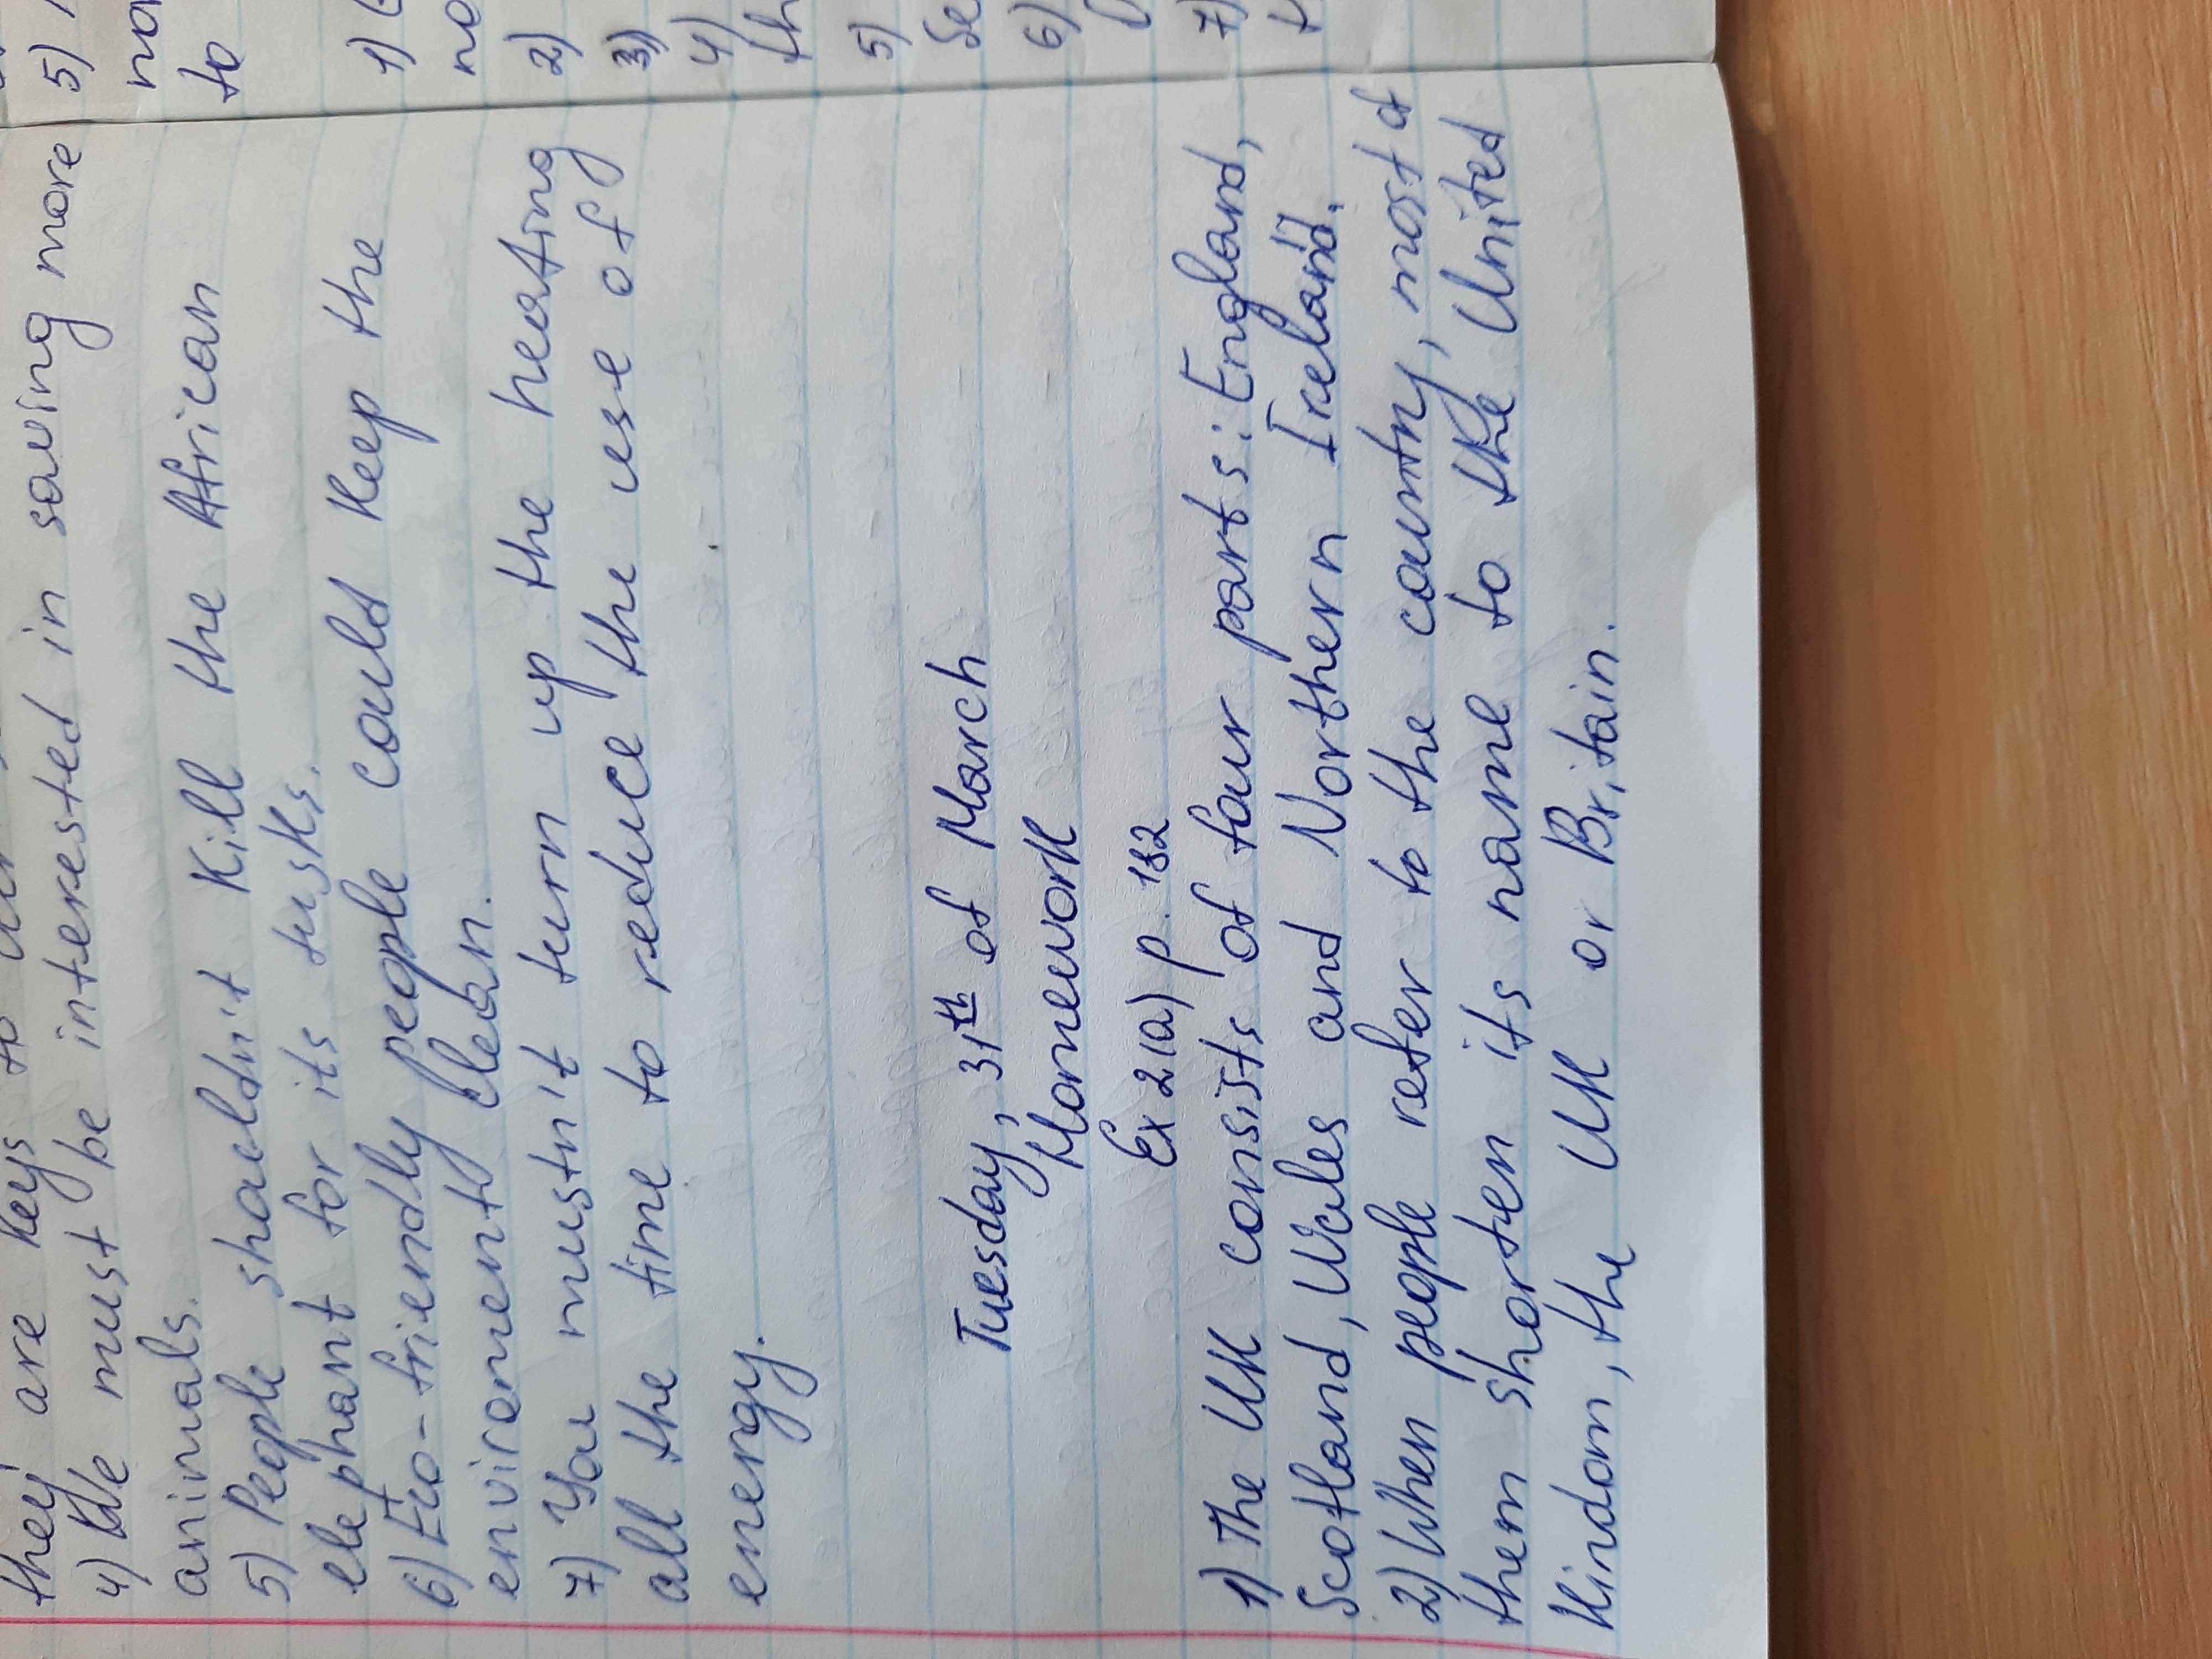 they are keys to
4) We must be interested in saving more
animals.
5) People shouldn't kill the African
elephant for its tusks.
6) Eco-friendly people could keep the
environment clean.
7) You mustn't turn up the heating
all the time to reduce the use of
energy.
Tuesday, 31th of March
Homework
Ex 21a) p. 182
1) The UK consists of four parts: England,
Scotland, Wales and Northern Ireland.
2) When people refer to the country, most of
them shorten its name to the United
Kindom, the UK or Britain.
5)
to
1)
2)
3)
4)
5)
6)
7)